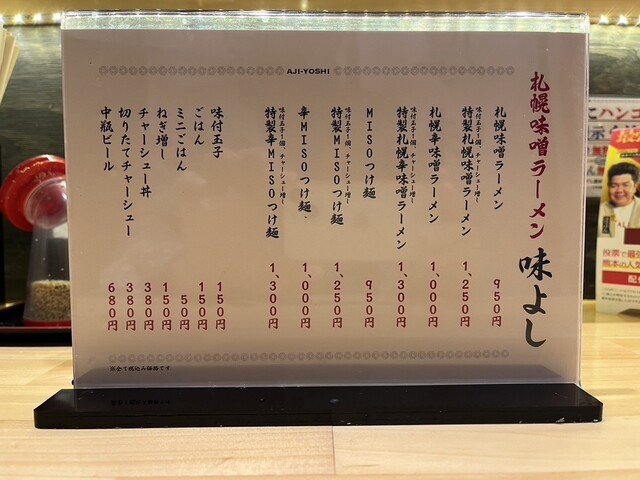 AJI-YOSHI
札幌味噌ラーメン 味よし
札幌味噌ラーメン 950円
味付玉子1個、チャーシュー増し
特製札幌味噌ラーメン 1,250円
札幌辛味噌ラーメン 1,000円
味付玉子1個、チャーシュー増し
特製札幌辛味噌ラーメン 1,300円
MISOつけ麺 950円
味付玉子1個、チャーシュー増し
特製MISOつけ麺 1,250円
辛MISOつけ麺 1,000円
味付玉子1個、チャーシュー増し
特製辛MISOつけ麺 1,300円
味付玉子 150円
ごはん 150円
ミニごはん 50円
ねぎ増し 150円
チャーシュー丼 380円
切りたてチャーシュー 380円
中瓶ビール 680円
※全て税込み価格です
投票で最
熊本の人